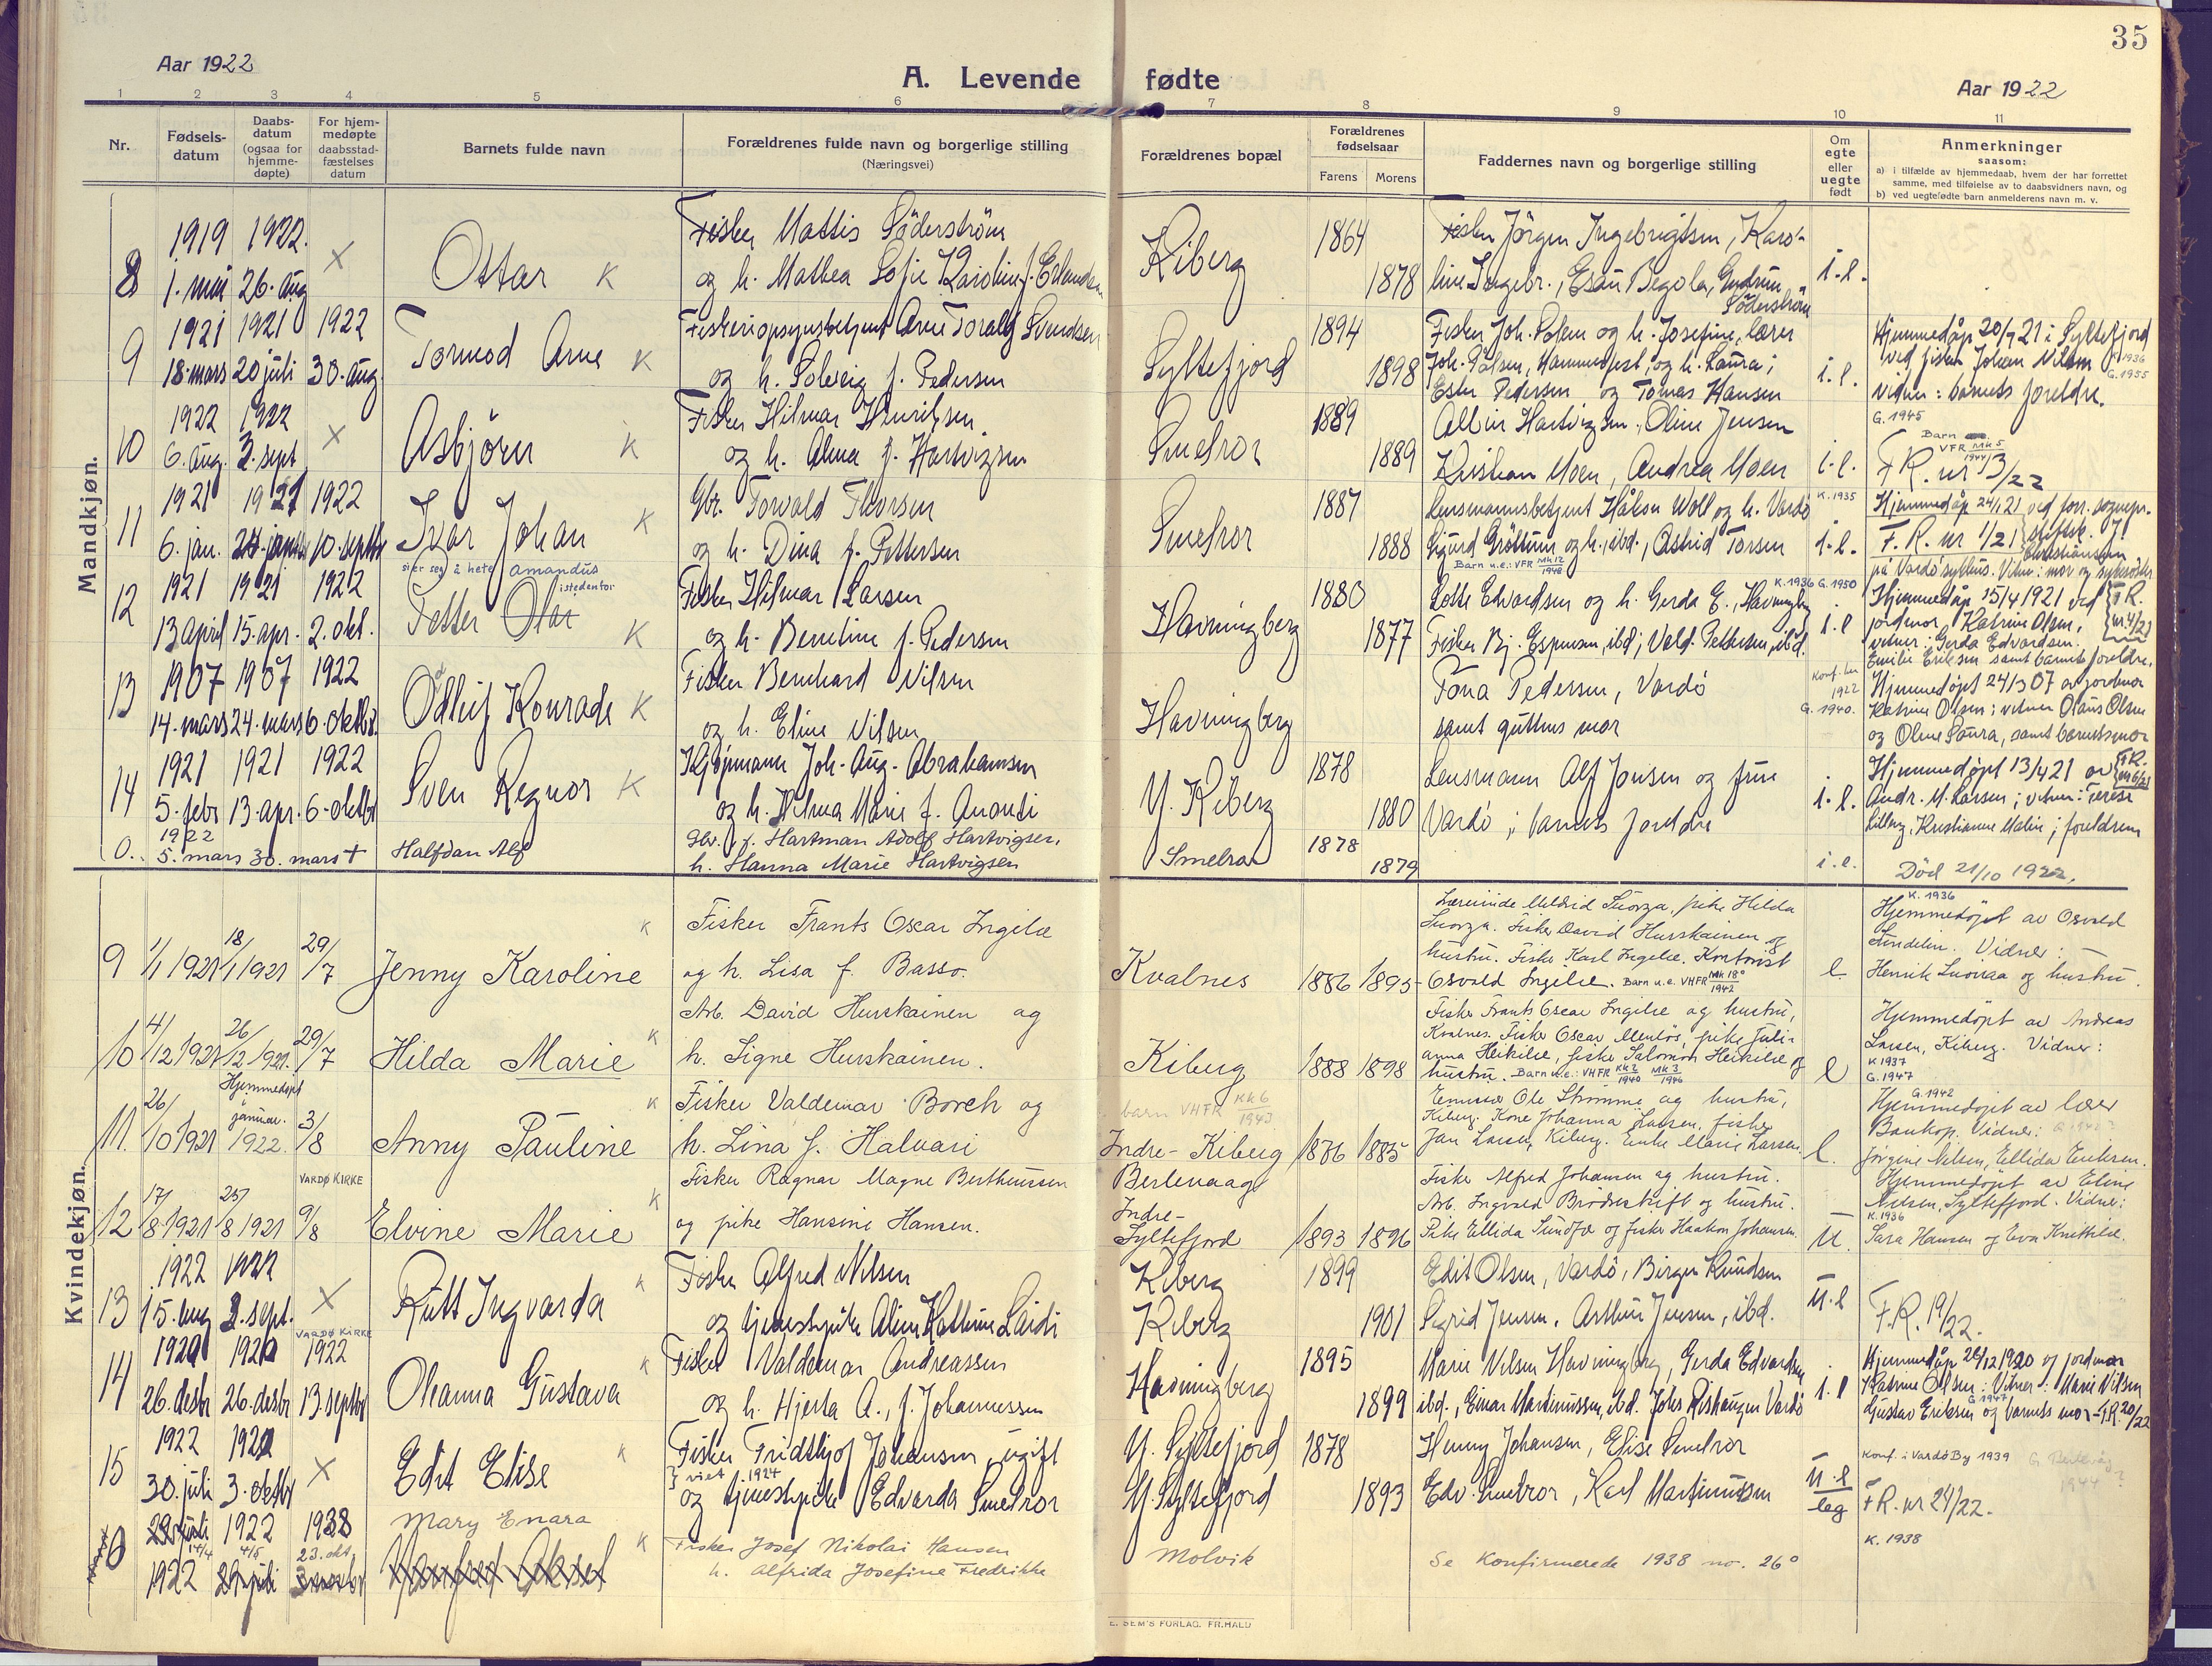 35
Aar 1922
A. Levende fødte
Aar 1922
1 2 3 4 5 6 7 8 9 10 11
Nr.
Fødsels-
datum
Daabs-
datum
(ogsaa for
hjemme-
døpte)
For hjem-
medøpte
daabsstad-
fæstelses
datum
Barnets fulde navn
Forældrenes fulde navn og borgerlige stilling
(Næringsvei)
Forældrenes bopæl
Forældrenes
fødselsaar
Farens Morens
Faddernes navn og borgerlige stilling
Om
egte
eller
uegte
født
Anmerkninger
saasom:
a) i tilfælde av hjemmedaab, hvem der har forrettet
samme, med tilføielse av to daabsvidners navn, og
b) ved uegtefødte barn anmelderens navn m. v.
Mandkjøn.
8 1919 1. mai 1922. 26. aug × Ottar K
Fisker Mattis Söderström
og h. Mathea Sofie Karoline f. Erlandsen
Kiberg 1864 1878
Fisker Jörgen Ingebrigtsen, Karo-
line Ingebr., Esau Begola, Gudrun
Söderström
i.e.
9 1921 18. mars 1921 20 juli 1922 30. aug. Tormod Arne K
Fiskeriopsynsbetjent Arne Toralf Svendsen
og h. Solveig f. Pedersen
Syltefjord 1894 1898
Fisker Joh. Polem og h. Josefine, lærer
Joh. Pålsen, Hammerfest, og h. Laura;
Ester Pedersen og Tomas Hansen
i.e.
Hjemmedåp 20/7 21 i Syltefjord
ved fisker Johan Nilsen K 1936
G. 1955
vidner: barnets foreldre.
10 1922 6. aug. 1922 3. sept × Asbjörn K
Fisker Hilmar Henriksen
og h. Alma f. Hartvigsen
Smelror 1889 1889
Albin Hartvigsen, Oline Jensen
Kristian Moen, Andrea Moen
i.e.
G. 1945
Barn VFR Mk 5 1944
F R. nr 13/22
11 1921 6. jan. 1921 24. januar 1922 10. septbr Ivar Johan K
Gbr. Torvald Thorsen
og h. Dina f. Pettersen
Smelror 1887 1888
Lensmannsbetjent Håkon Woll og h. Vardö
Sigurd Gröttum og h., ibd., Astrid Torsen
Barn u.e.: VFR Mk 12 1948
K. 1935
i.e.
Hjemmedåp 24/1 21 ved forr. sognepr.
F. R. nr 1/21 stiftsk. J.
Christiansen
på Vardö sykhus. Vitner: mor og sykesöster
12 1921 13 april 1921 15. apr. 1922 2. okt. Petter Olav K
sier seg å hete Amandus
istedenfor
Fisker Hilmar Larsen
og h. Berntine f. Pedersen
Havningberg 1880 1877
Lotte Edvardsen og h. Gerda E., Havningberg
Fisker Bj. Espensen, ibd; Vald. Pettersen, ibd.
K. 1936 G. 1950
i.e
Hjemmedåp 15/4 1921 ved F R. nr. 4/21
jordmor Katrine Olsen.
vitner: Gerda Edvardsen.
Emilie Eriksen samt barnets foreldre.
13 1907 14. mars 1907 24. mars 1922 6. oktbr. Odleif Konrade K
Fisker Bernhard Nilsen
og h. Eline Nilsen
Havningberg
Tona Pedersen, Vardö
samt guttens mor
Konf. her
1922
G. 1940.
Hjemmedöpt 24/3 07 av jordmor
Katrine Olsen; vitner Olaus Olsen
og Oline Laura, samt barnets mor
14 1921 5. febr 1921 13. apr. 1922 6. oktbr Sven Regnor K
Kjöpmann Joh. Aug. Abrahamsen
og h. Helma Marie f. Ananti
Y. Kiberg 1878 1880
Lensmann Alf Jonsen og frue
Vardö; barnets foreldre
i.e.
Hjemmedöpt 13/4 21 av F R. nr 6/21
Andr. M. Larsen; vitner: Terese
Lilleng, Kristianne Malin; foreldrene
0. 1922 5. mars 30. mars + Halfdan Alf
Gbr. f. Hartman Adolf Hartvigsen.
h. Hanna Marie Hartvigsen
Smelror 1878 1879 i.e.
Död 21/10 1922.
Kvindekjøn.
9 1/1 1921 18/1 1921 29/7 Jenny Karoline K
Fisker Frants Oscar Ingilæ
og h. Lisa f. Basso.
Kvalnes 1886 1895
Lærerinde Mildrid Suorza, pike Hilda
Suorza. Fisker David Hurskainen og
hustru. Fisker Karl Ingelæ. Kontorist
Osvald Ingilæ. Barn u.e. VHFR Mk 18° 1942
e
K. 1936
Hjemmedöpt av Osvald
Lindelin. Vidner:
Henrik Luoraa og hustru.
10 4/12 1921 26/12 1921. 29/7 Hilda Marie K
Arb. David Hurskainen og
h. Signe Hurskainen.
Kiberg 1888 1898
Fisker Frants Oscar Ingilæ og hustru,
Kvalnes. Fisker Oscar Mentös, pike Juli-
anna Heikilæ, fisker Salomon Heikilæ og
hustru. Barn u.e.: VHFR KK 2 1940 MK 3 1946
e
Hjemmedöpt av Andreas
Larsen, Kiberg. Vidner:
K 1937
G. 1947
11. 26/10 1921 Hjemmedöpt januar. 1922. 3/8 Anny Pauline K
Fisker Valdemar Borch og
h. Lina f. Halvari
barn VHFR KK 6 1943
Indre-Kiberg 1886 1885
Emissær Ole Strömme og hustru,
Kiberg. Kone Johanna Larsen, fisker
Jan Larsen, Kiberg. Enke Marie Larsen.
e.
G. 1942
Hjemmedöpt av lærer
Bankop. Vidner:
Jörgine Nilsen, Ellida Eriksen.
12 17/8 1921 25/8 1921 VARDØ KIRKE 9/8 Elvine Marie K
Fisker Ragnar Magne Berthiussen
og pike Hansine Hansen.
Berlevaag
Indre-
Syltefjord 1893 1896
Fisker Alfred Johansen og hustru.
Arb. Ingvald Brödreskift og hustru.
Pike Ellida Sundfæ og fisker Haakon Johansen.
u.
Hjemmedöpt av Eline
Nilsen, Syltefjord. Vidner:
K. 1936
Sara Hansen og Eva Knittilæ.
13 1922 15. aug 1922 3. sept. × Rutt Ingvarda K
Fisker Alfred Nilsen
og tjenestepike Aline Kathrine Laiti
Kiberg
Kiberg 1899 1901
Edit Olsen, Vardö, Birger Knudsen
Sigrid Jensen, Arthur Jensen, ibd.
u.e
F. R. 19/22.
14 1920 26. desbr 1920 26. desbr VARDØ KIRKE 1922 13. septbr Oleanna Gustava K
Fisker Valdemar Andreassen
og h. Hjerta A., f. Johannessen
Havningberg 1895 1899
Marie Nilsen Havningberg, Gerda Edvardsen
ibd., Einar Martinussen, ibd. Johs Rishaugen Vardö
i.e
Hjemmedåp 26/12 1920 av jordmor
Katrine Olsen; Vitner: Marie Nilsen
G. 1947
Gustav Eriksen og barnets mor - F.R. 20/22
15 1922 30. juli 1922 3. oktbr × Edit Elise K
Fisker Fridthjof Johansen, ugift
viet 1924
og tjenestepike Edvarda Smelror
Y. Syltefjord
Y. Syltefjord 1878 1893
Henny Johansen, Elise Smelror
Edv. Smelror, Karl Martinussen
u.e
leg
Konf. i Vardö By 1939
1944 ?
F R. nr 24/22.
0 14/4 1922 1922 4/5 1938 23. okt. Mary Enara K
Fisker Josef Nikolai Hansen
h. Alfrida Josefine Fredrikke
Molvik
Se Konfirmerede 1938 no. 26°
K. 1938
E. SEM'S FORLAG. FR.HALD